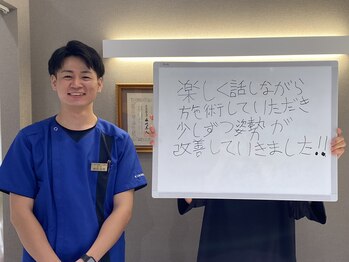 楽しく話しながら
施術していただき
少しずつ姿勢が
改善していきました!!